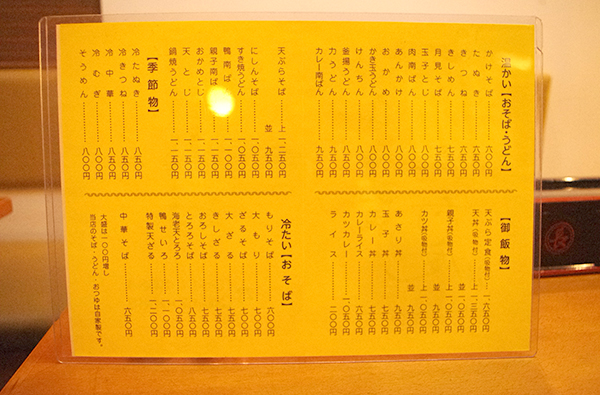 温かい【おそば・うどん】
かけそば………六〇〇円
たぬき………六五〇円
きつね………六五〇円
きしめん………
月見そば………七五〇円
玉子とじ………七五〇円
肉南ばん………
あんかけ………
おかめ………
かき玉うどん………
けんちん………
釜揚うどん………
力うどん………
カレー南ばん………九五〇円
天ぷらそば……上 一、二五〇円
並 九五〇円
にしんそば………
すき焼うどん………
鴨南ばん………一、一〇〇円
親子南ばん………
おかめとじ………
天とじ………一、一五〇円
鍋焼うどん………一、一五〇円
【季節物】
冷たぬき………八五〇円
冷きつね………八五〇円
冷中華………
冷むぎ………八〇〇円
そうめん………八〇〇円
【御飯物】
天ぷら定食(吸物付)…一、六五〇円
天丼(吸物付)……上 一、三五〇円
並 一、〇五〇円
親子丼(吸物付)……上 一、〇五〇円
並 九五〇円
カツ丼(吸物付)……上 一、〇五〇円
並 九五〇円
あさり丼………九五〇円
玉子丼………
カレー丼………
カレーライス………七五〇円
カツカレー………一、〇五〇円
ライス………二〇〇円
冷たい【おそば】
もりそば………六〇〇円
大もり………七〇〇円
ざるそば………七〇〇円
大ざる………
きしざる………七五〇円
おろしそば………七五〇円
とろろそば………八五〇円
海老天とろろ………一、〇五〇円
鴨せいろ………一、一〇〇円
特製天ざる………一、二〇〇円
中華そば………六五〇円
大盛は一〇〇円増し
当店のそば・うどん おつゆは自家製です。